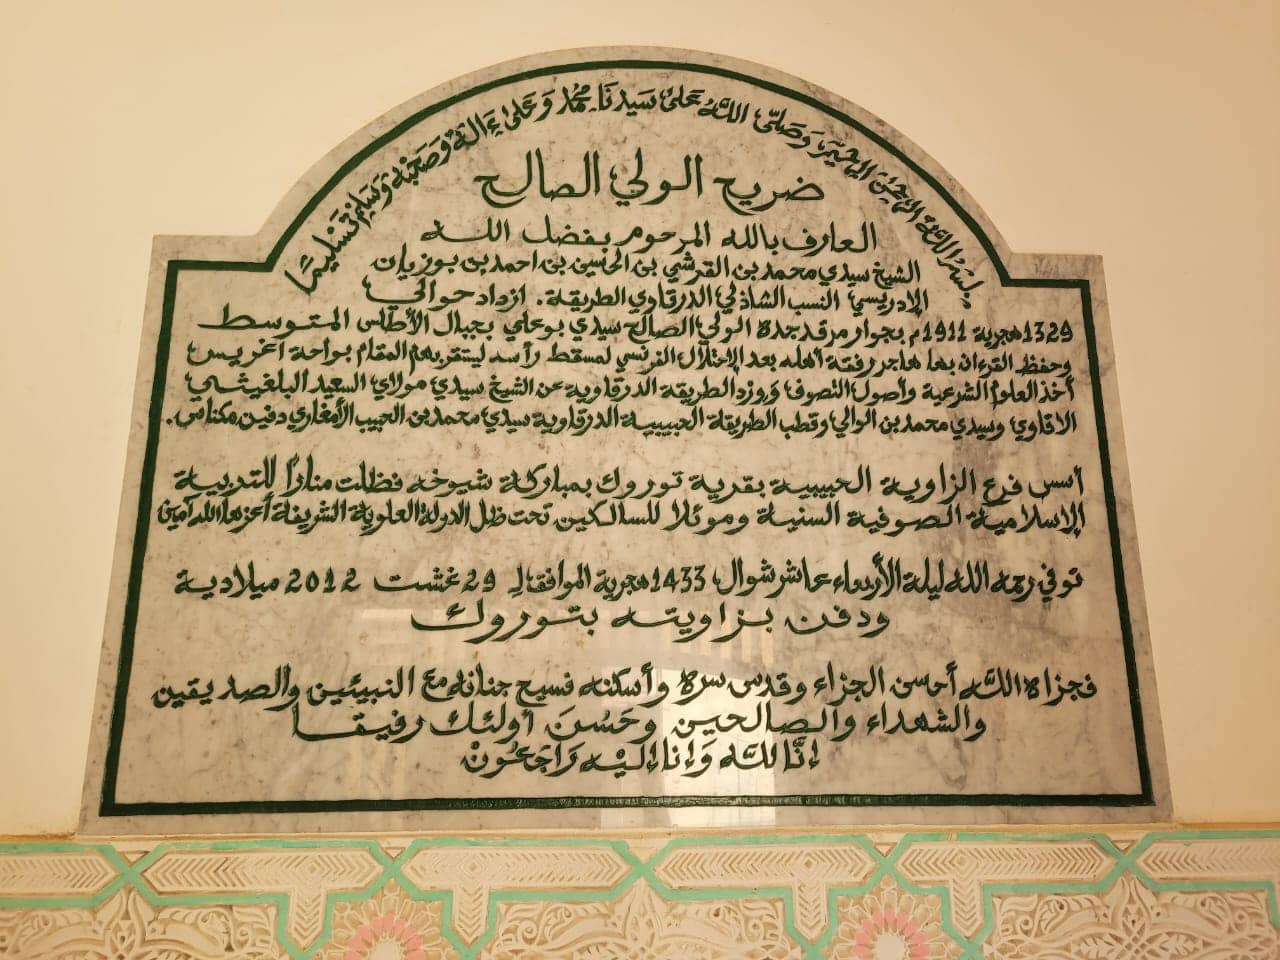 بسم الله الرحمن الرحيم وصلى الله على سيدنا محمد وعلى ءاله وصحبه وسلم تسليمًا
ضريح الولي الصالح
العارف بالله المرحوم بفضل الله
الشيخ سيدي محمد بن القرشي بن الحسين بن احمد بن بوزيان
الإدريسي النسب الشاذلي الدرقاوي الطريقة. ازداد حوالي
1329 هجرية 1911م بجوار مرقد جده الولي الصالح سيدي بوعلي بجبال الأطلس المتوسط
وحفظ القرءان بها هاجر رفقة أهله بعد الإحتلال الفرنسي لمسقط رأسه ليستقر بهم المقام بواحة اغريس
أخذ العلوم الشرعية وأصول التصوف وورد الطريقة الدرقاوية عن الشيخ سيدي مولاي السعيد البلغيثي
الاقاوي وسيدي محمد بن الوالي وقطب الطريقة الحبيبية الدرقاوية سيدي محمد بن الحبيب الأمغاري دفين مكناس.
أسس فرع الزاوية الحبيبية بقرية توروك بمباركة شيوخه فظلت منارًا للتربية
الإسلامية الصوفية السنية وموئلا للسالكين تحت ظل الدولة العلوية الشريفة أعزها الله آمين
توفي رحمه الله ليلة الأربعاء عاشر شوال 1433 هجرية الموافق لـ 29 غشت 2012 ميلادية
ودفن بزاويته بتوروك
فجزاه اللَّه أحسن الجزاء وقدس سره وأسكنه فسيح جنانه مع النبيئين والصديقين
والشهداء والصالحين وحَسُنَ أولئك رفيقا
إنَّا للَّه وَإنا إليْه رَاجعُونْ